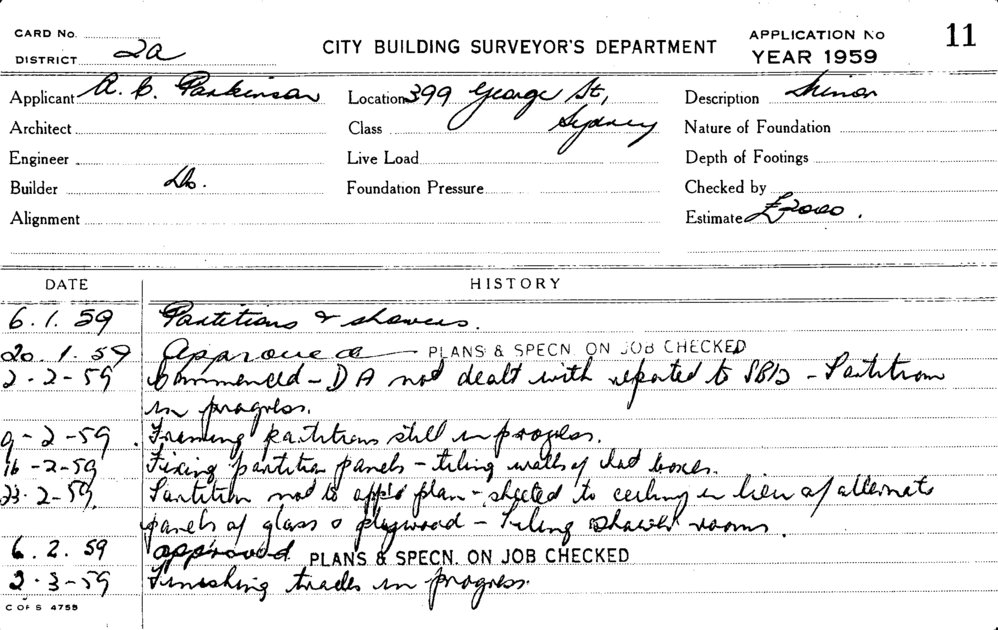 CARD No.
DISTRICT 2a
CITY BUILDING SURVEYOR'S DEPARTMENT
APPLICATION No 11
YEAR 1959
Applicant A. C. Parkinson
Location 399 George St,
Sydney
Description Minor
Architect
Class
Nature of Foundation
Engineer
Live Load
Depth of Footings
Builder Do.
Foundation Pressure
Checked by
Alignment
Estimate £2000.
DATE HISTORY
6.1.59 Partitions & showers.
20.1.59 Approved PLANS & SPECN. ON JOB CHECKED
2-2-59 Commenced - DA not dealt with reported to - Partition
in progress.
9-2-59 Framing partitions still in progress.
16-2-59 Fixing partition panels - tiling walls of boxes.
23-2-59 Partition not to app'd plan - sheeted to ceiling in lieu of alternate
panels of glass & plywood - Tiling shower rooms
6.2.59 approved PLANS & SPECN. ON JOB CHECKED
2-3-59 Finishing trades in progress.
C OF S 4755